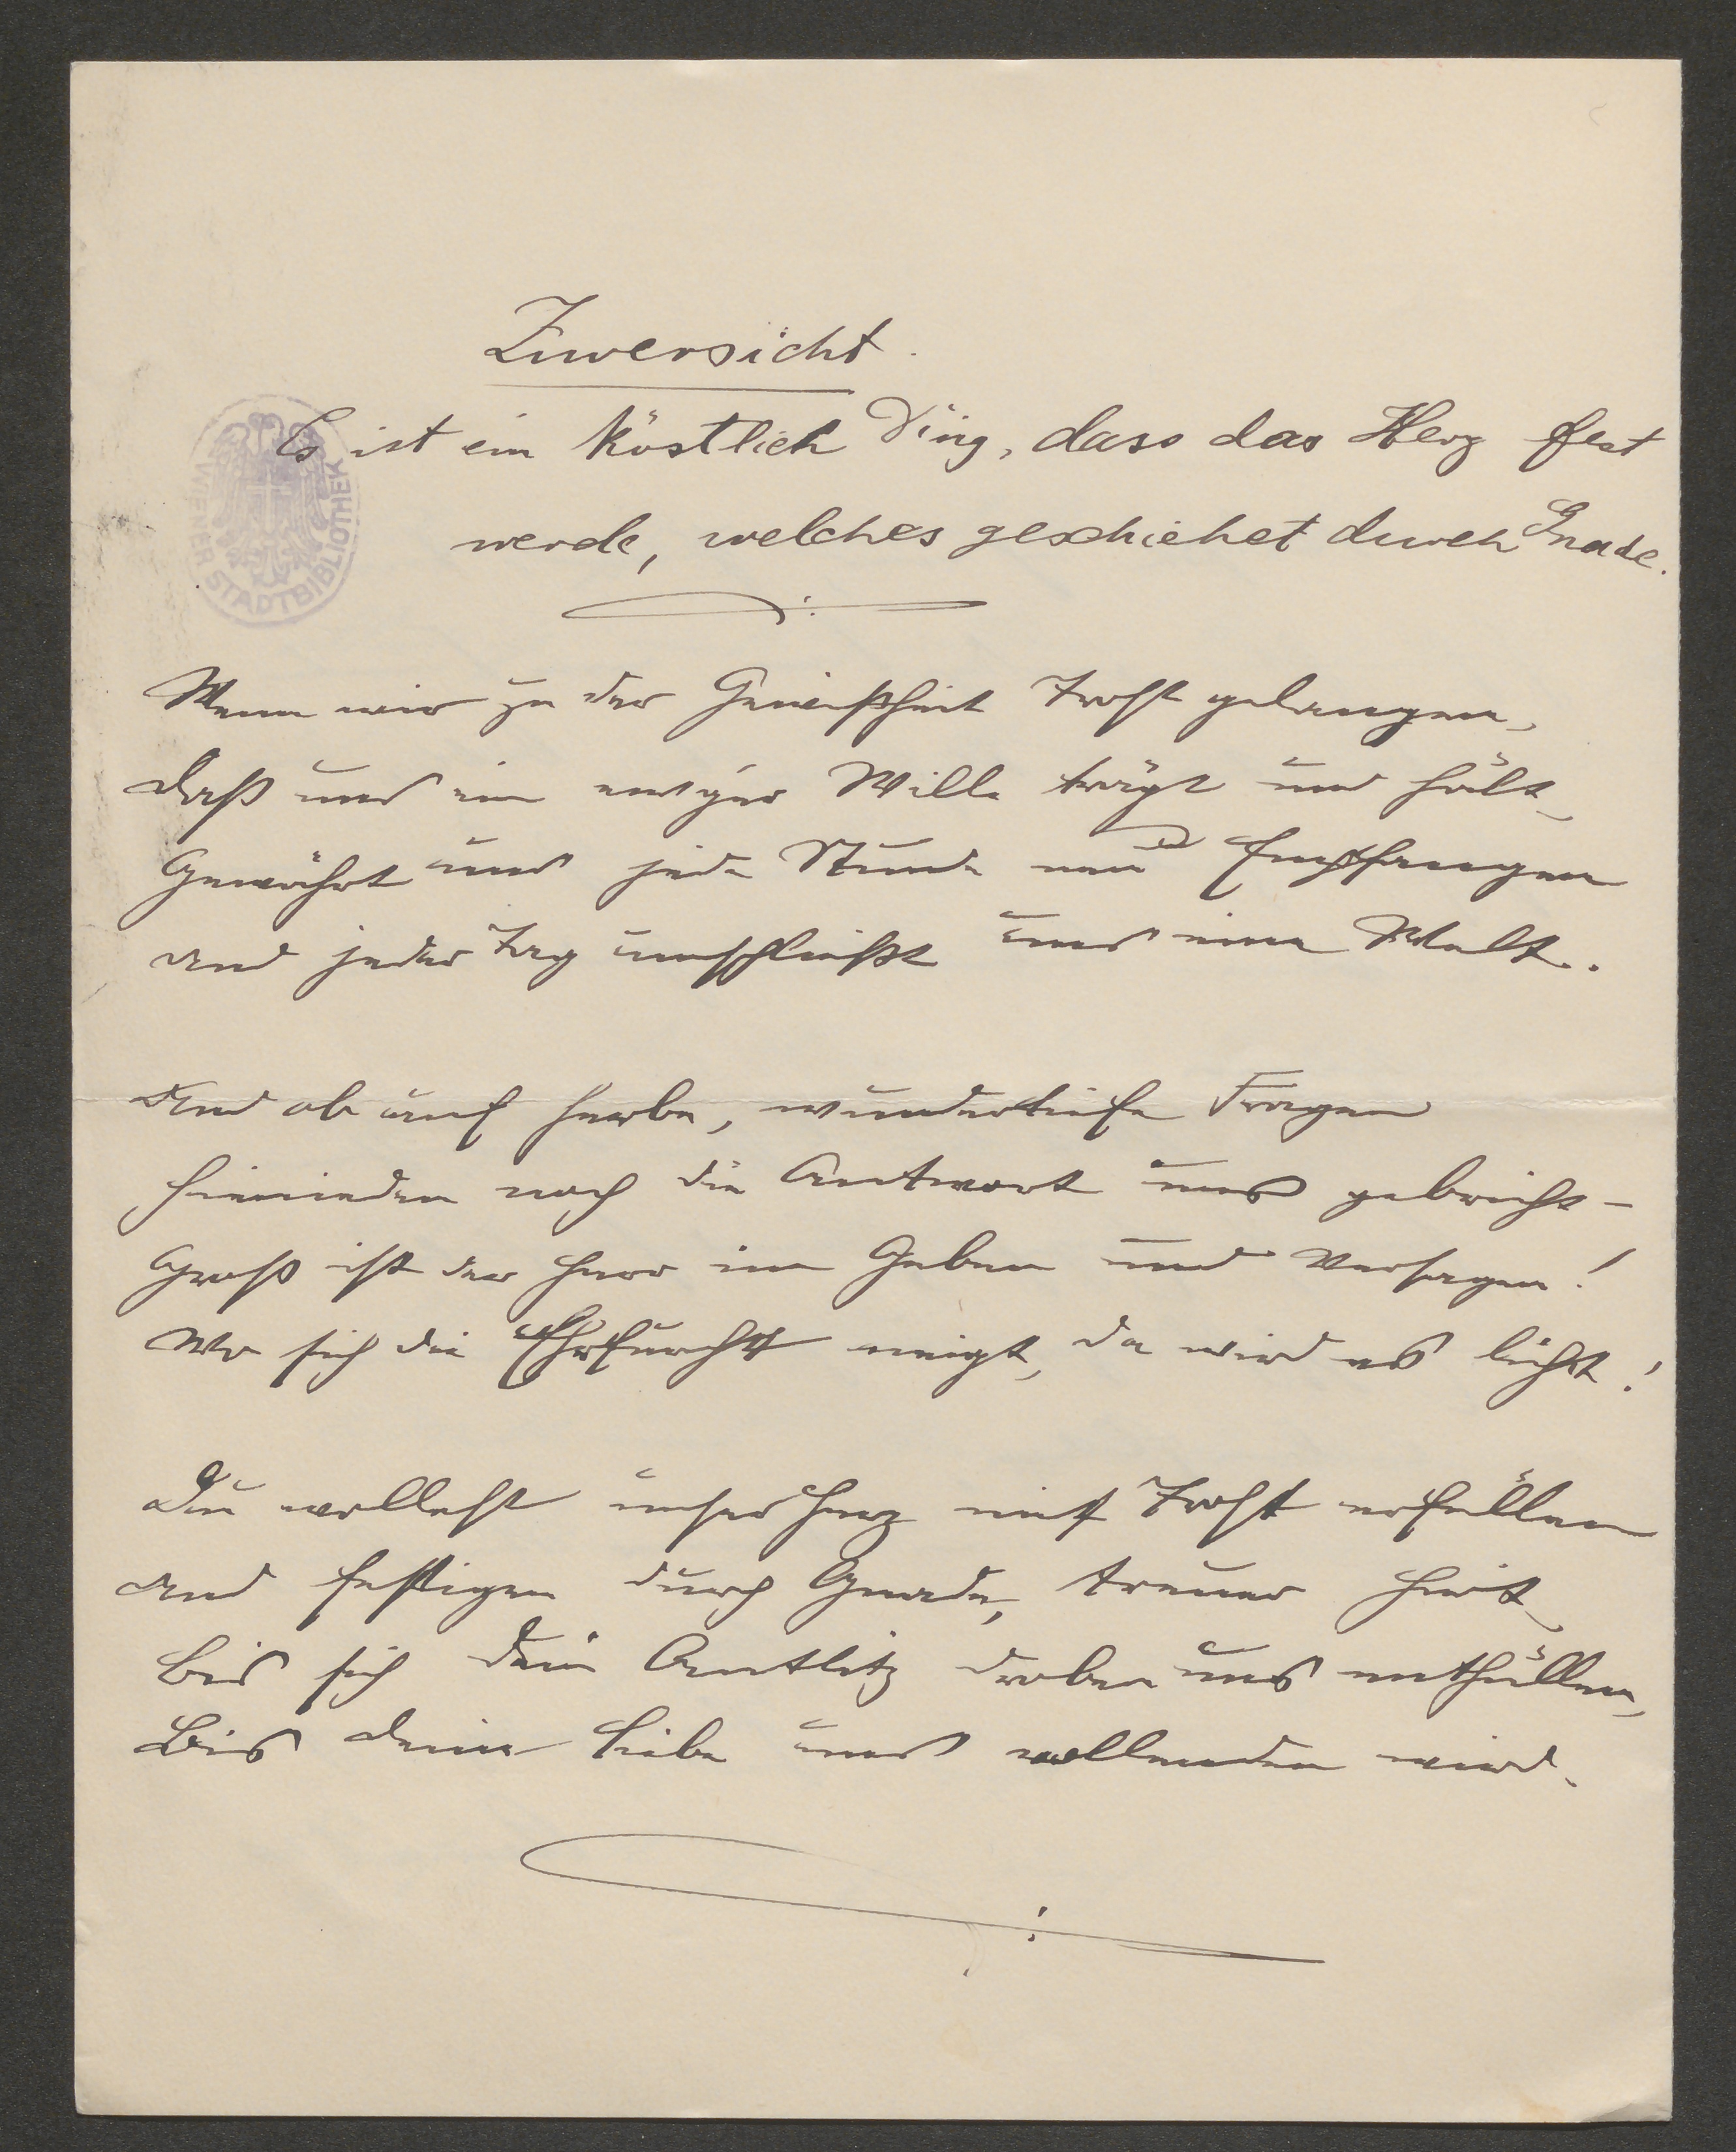 Zuversicht.
Es ist ein köstlich Ding, dass das Herz fest
werde, welches geschiehet durch Gnade.
WIENER STADTBIBLIOTHEK
Wenn wir zu der Gewißheit Trost gelangen,
Daß uns ein ewger Wille trägt und hält,
Gewährt uns jede Stunde neu Empfangen
Und jeder Tag umschließt uns eine Welt.
Und ob auf herbe, wundertiefe Fragen
Hienieden noch die Antwort uns gebricht –
Groß ist der Herr im Geben und Versagen!
Wo sich die Ehrfurcht neigt, da wird es licht!
Du wollest unser Herz mit Trost erfüllen
Und festigen durch Gnade, treuer Hirt,
Bis sich dein Antlitz droben uns enthüllen,
Bis deine Liebe uns vollenden wird.